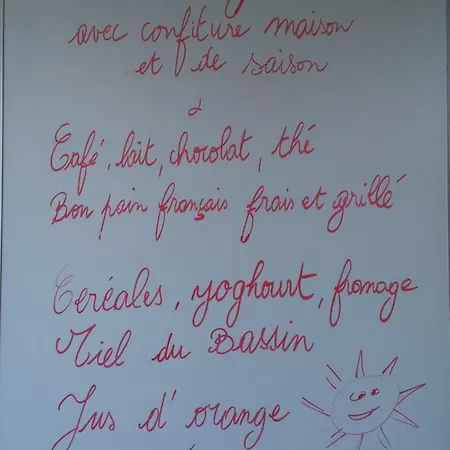 avec confiture maison
et de saison
&
Café, lait, chocolat, thé
Bon pain français frais et grillé
Ceréales, yoghourt, fromage
Miel du Bassin
Jus d'orange